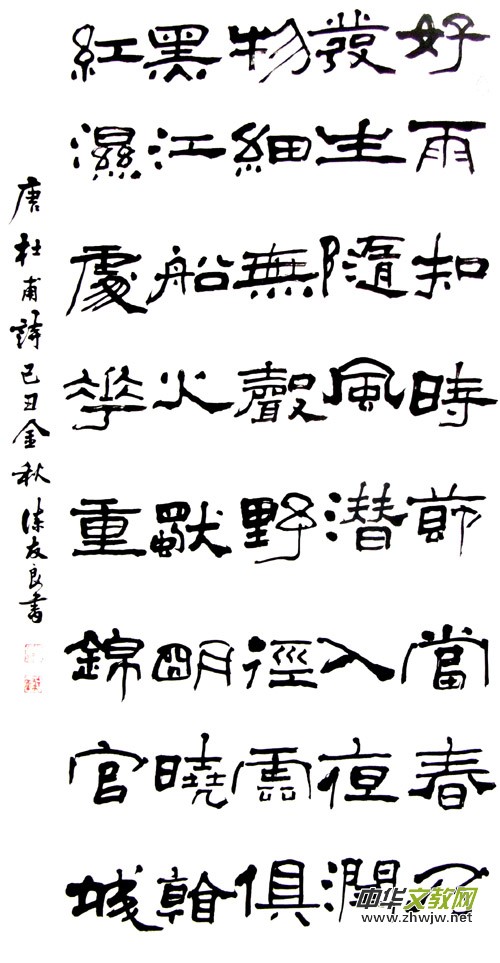 好雨知時節當春乃
發生隨風潜入夜潤
物細無聲野徑雲俱
黑江船火獨明曉看
紅濕處花重錦官城
唐杜甫詩己丑金秋友良書
中华文教网
www.zhwjw.net